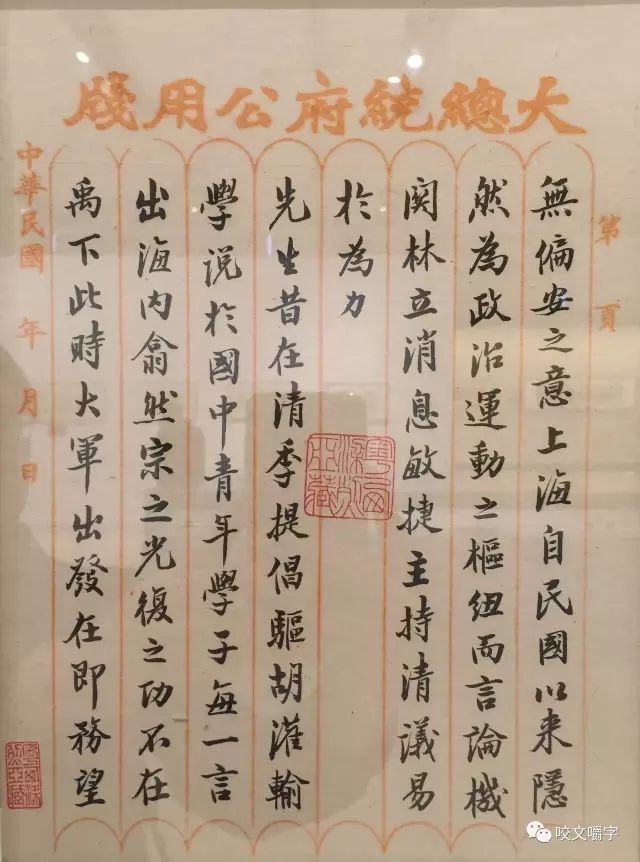 大總統府公用牋
第 頁
無偏安之意上海自民國以来隱
然為政治運動之樞紐而言論機
関林立消息敏捷主持清議易
於為力
先生昔在清季提倡驅胡灌輸
學説於國中青年學子每一言
出海内翕然宗之光復之功不在
禹下此時大軍出發在即務望
中華民國 年 月 日
咬文嚼字